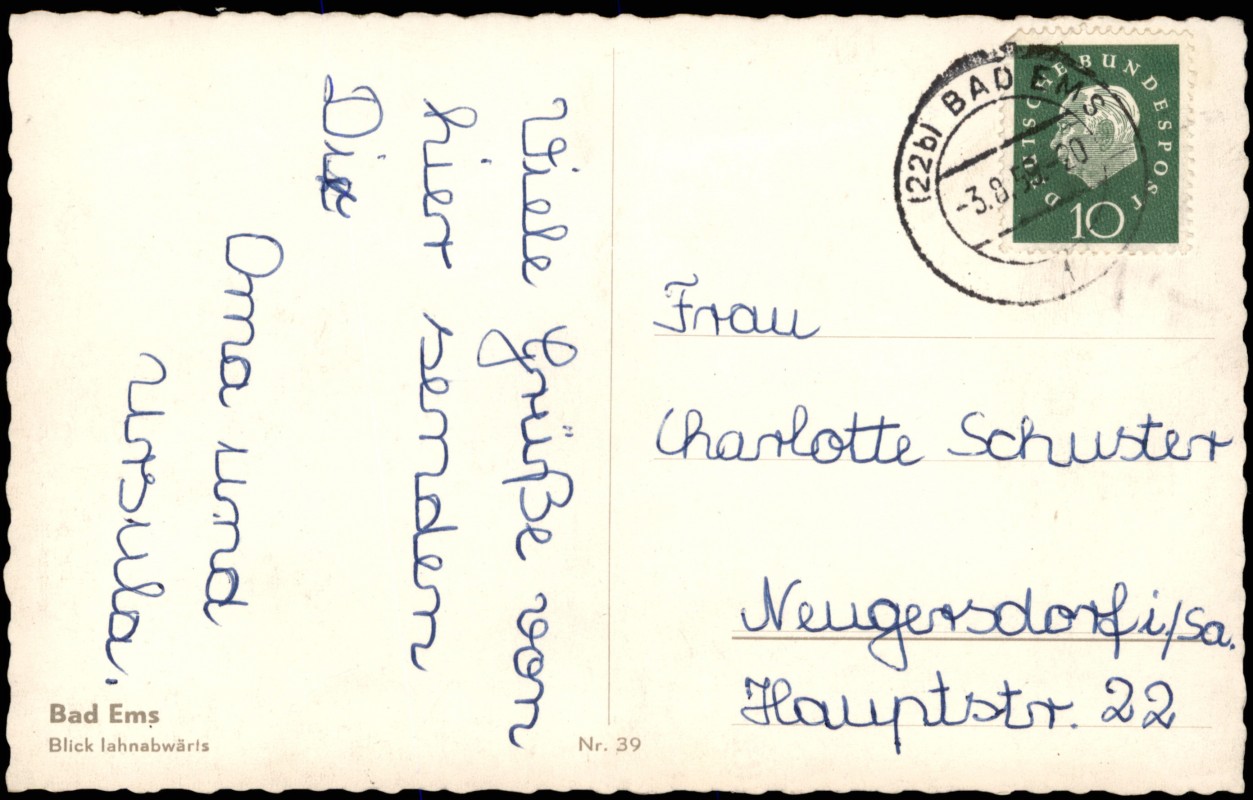 Viele Grüße von
hier senden
Dir
Oma und
Ursula.
Bad Ems
Blick lahnabwärts
Nr. 39
(22b) BAD EMS
-3.8.59.-20
DEUTSCHE BUNDESPOST
10
Frau
Charlotte Schuster
Neugersdorf i/Sa.
Hauptstr. 22